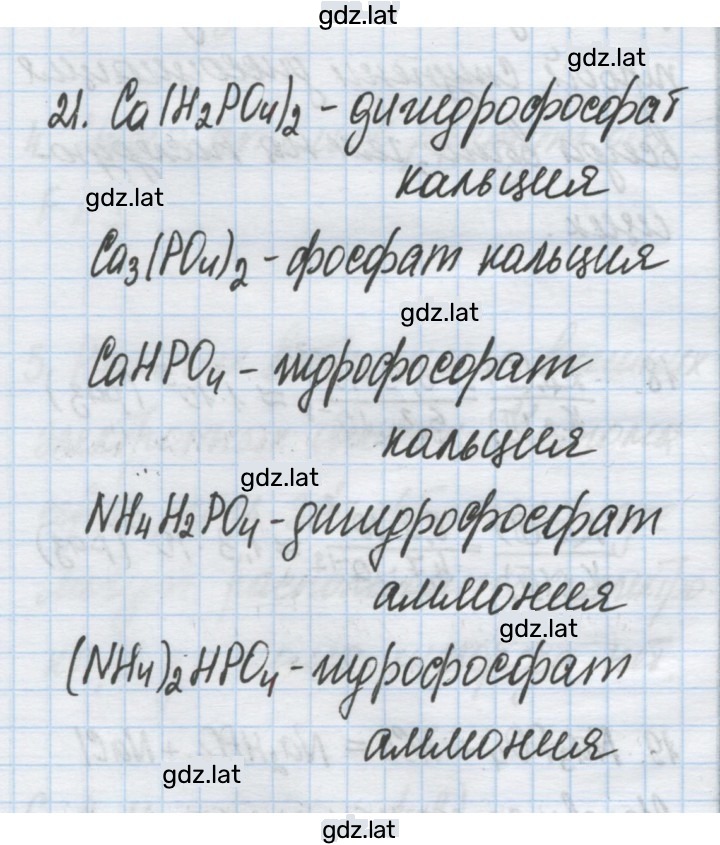 gdz.lat
gdz.lat
21. Ca(H₂PO₄)₂ - дигидрофосфат
кальция
gdz.lat
Ca₃(PO₄)₂ - фосфат кальция
gdz.lat
CaHPO₄ - гидрофосфорат
кальция
gdz.lat
NH₄H₂PO₄ - дигидрофосфат
аммония
gdz.lat
(NH₄)₂HPO₄ - гидрофосфат
аммония
gdz.lat
gdz.lat